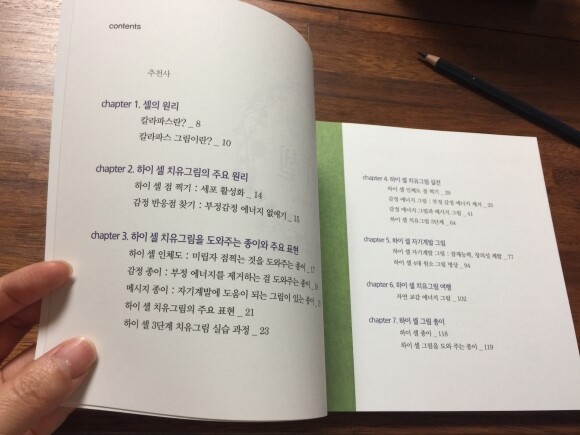 contents
추천사
chapter 1. 셀의 원리
칼라파스란? _ 8
칼라파스 그림이란? _ 10
chapter 2. 하이 셀 치유그림의 주요 원리
하이 셀 점 찍기 : 세포 활성화 _ 14
감정 반응점 찾기 : 부정감정 에너지 없애기 _ 15
chapter 3. 하이 셀 치유그림을 도와주는 종이와 주요 표현
하이 셀 인체도 : 미립자 점찍는 것을 도와주는 종이 _ 17
감정 종이 : 부정 에너지를 제거하는 걸 도와주는 종이 _
메시지 종이 : 자기계발에 도움이 되는 그림이 있는 종이 _
하이 셀 치유그림의 주요 표현 _ 21
하이 셀 3단계 치유그림 실습 과정 _ 23
chapter 4. 하이 셀 치유그림 실전
하이 셀 인체도 점 찍기 _
감정 에너지 그림 : 부정 감정 에너지 제거 _
감정 에너지 그림과 메시지 그림 _ 41
하이 셀 치유그림 3단계 _ 64
chapter 5. 하이 셀 자기계발 그림
하이 셀 자기계발 그림 : 잠재능력, 창의성 계발 _ 77
하이 셀 4대 원소 그림 명상 _ 94
chapter 6. 하이 셀 치유그림 여행
자연 교감 에너지 그림 _ 102
chapter 7. 하이 셀 그림 종이
하이 셀 종이 _ 118
하이 셀 그림을 도와 주는 종이 _ 119